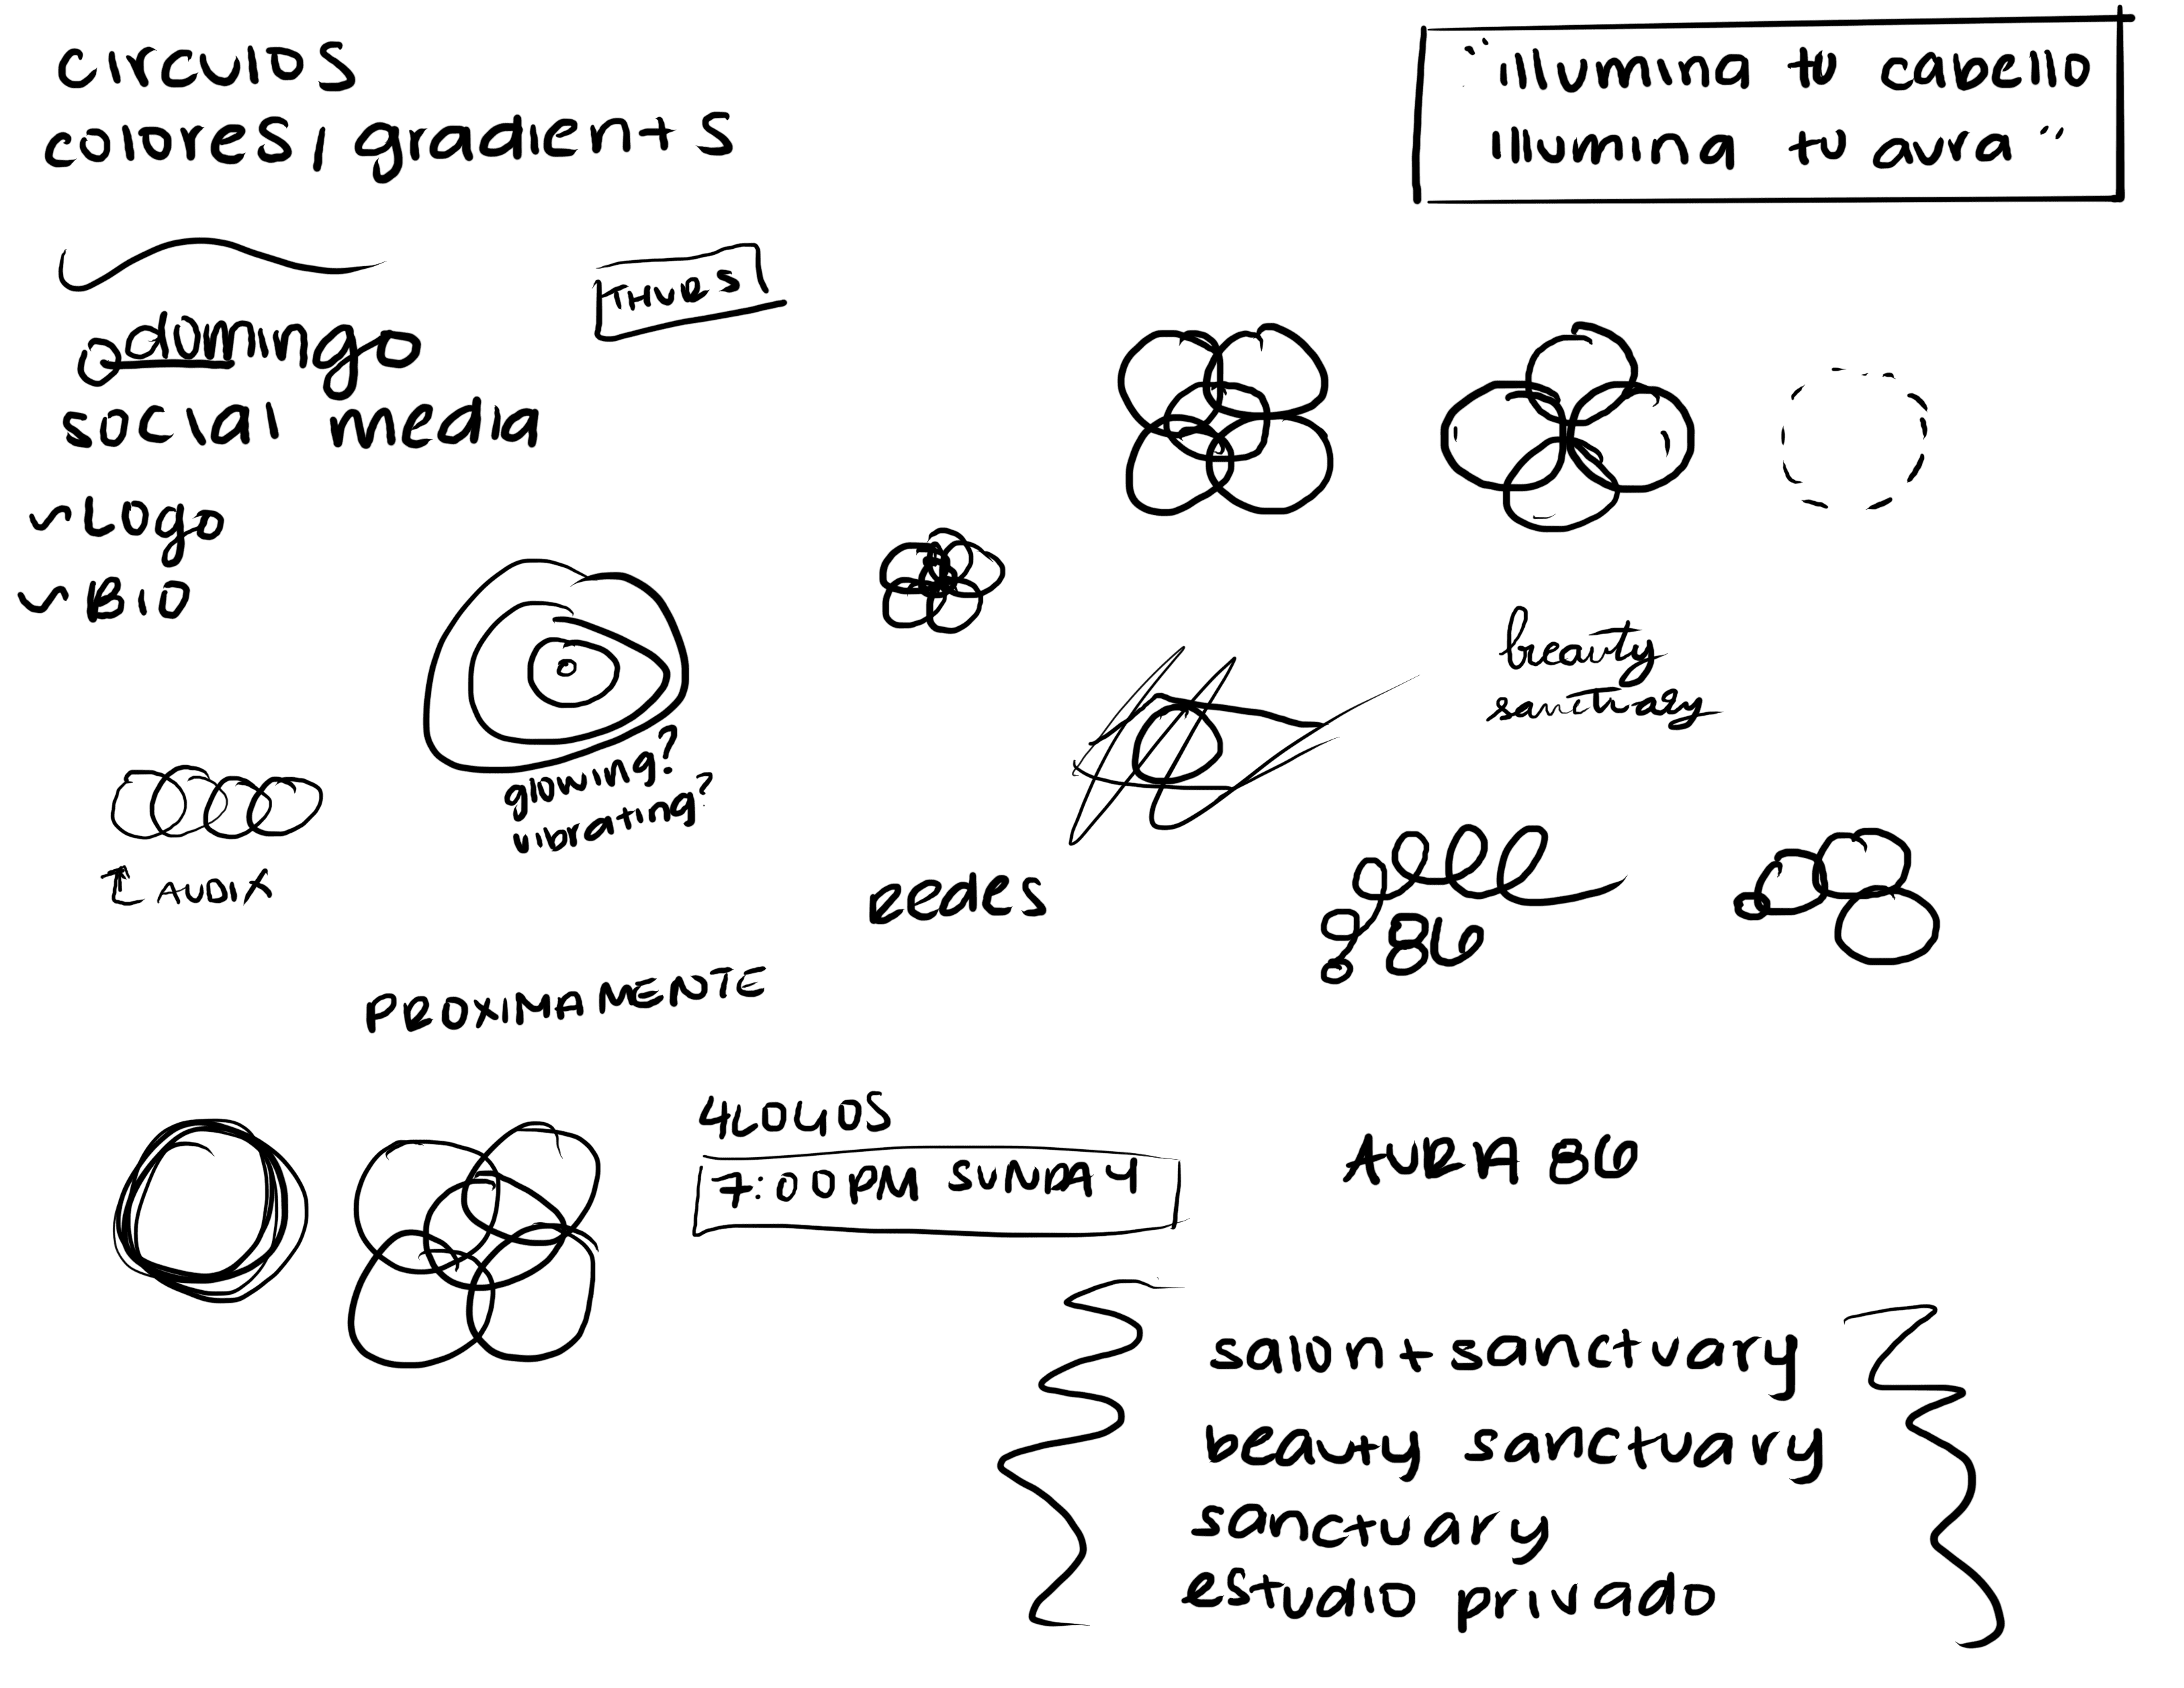 circulos
colores/gradients
"illumina tu cabello
illumina tu aura"
THURS
domingo
social media
~Logo
~BIO
glowing?
vibrating?
beauty
sanctuary
AUDIX
REDES
86
PROXIMAMENTE
4 LOGOS
7:00PM SUNDAY
AURA 86
salon + sanctuary
beauty sanctuary
sanctuary
estudio privado